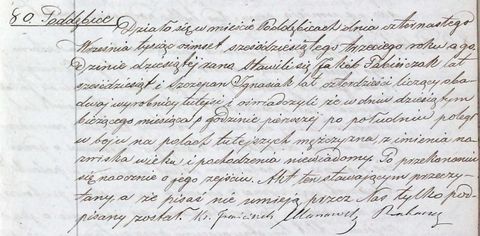 80. Poddębice. Działo się w mieście Poddębicach dnia czternastego
Września tysiąc ośmset sześćdziesiątego trzeciego roku o go
dzinie dziesiątej zrana Stawili się Jakób lat
sześćdziesiąt i Szczepan Ignasiak lat czterdzieści liczący oba
dwaj wyrobnicy tutejsi i oświadczyli że w dniu dziesiątym
bieżącego miesiąca o godzinie pierwszej po południu poległ
w boju na polach tutejszych mężczyzna z imienia na
zwiska wieku i pochodzenia niewiadomy. Po przekonaniu
się naocznie o jego zejściu. Akt ten stawającym przeczy
tany a że pisać nie umieją przez Nas tylko pod
pisany został. Ks.